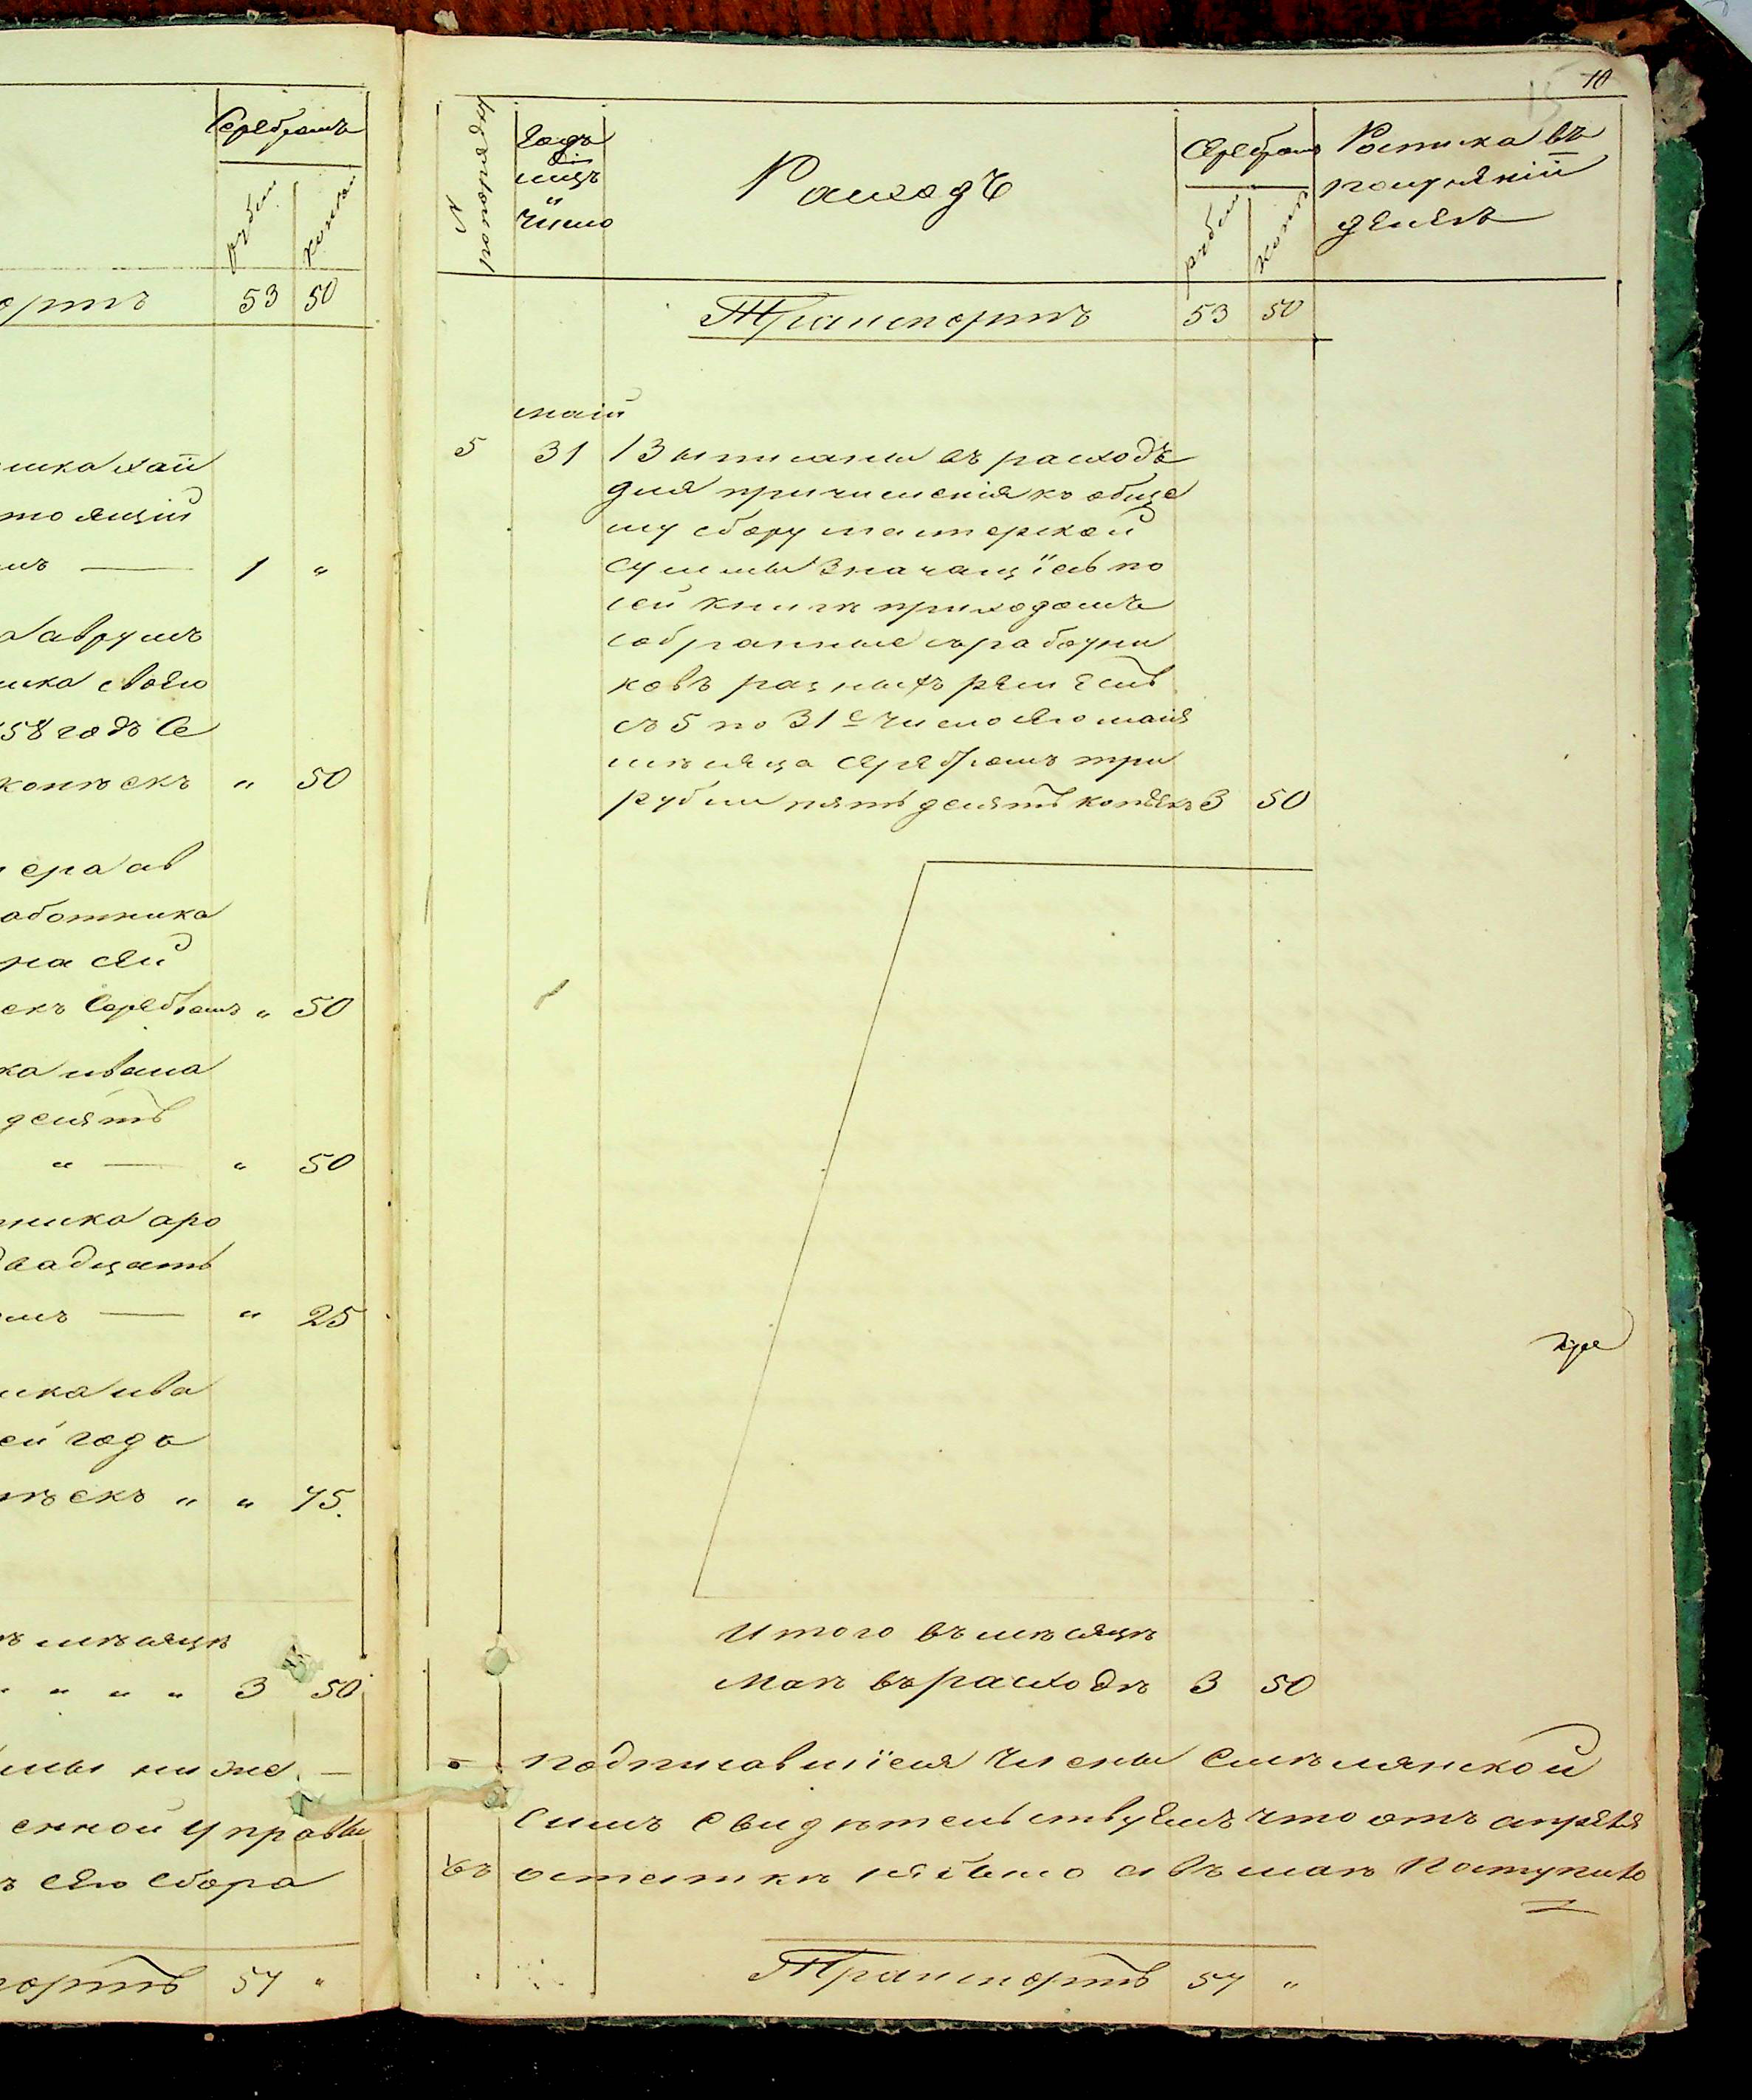 Серебромъ
рубли
копеи
ортъ 53 50
ника хаи
тоящий
мъ — 1 "
аврумъ
ика своего
58 годъ Се
копѣекъ " 50
ера ав
аботника
на сей
екъ Серебромъ " 50
ка ивана
десятъ
" — " 50
ника аро
двадцать
мъ — " 25
ика ива
ей года
пѣекъ " " 75.
ѣ мѣсяцѣ
" " " " 3 50
мы ниже —
енной управы
ъ сего сбора
портъ 57 "
10
№ по порядку
Годъ
мцъ
и
число
Расходъ
Серебромъ
рубли
копе
Росписка въ
получении
денегъ
Транспортъ 53 50
маій
5 31 Выписаны въ расходъ
для причисления къ обще
му сбору мастерской
суммы значащіесь по
сей книгѣ приходомъ
собранные съ работни
ковъ разныхъ ремеслъ
съ 5 по 31е число сего маія
мѣсяца серебромъ три
рубли пятьдесятъ копѣекъ 3 50
Итого въ мѣсяцѣ
маѣ въ расходѣ 3 50
подписавшіеся Члены Смѣлянской
Симъ свидѣтельствуемъ что отъ апреля
въ остаткѣ небыло а въ маѣ поступило
Транспортъ 57 "